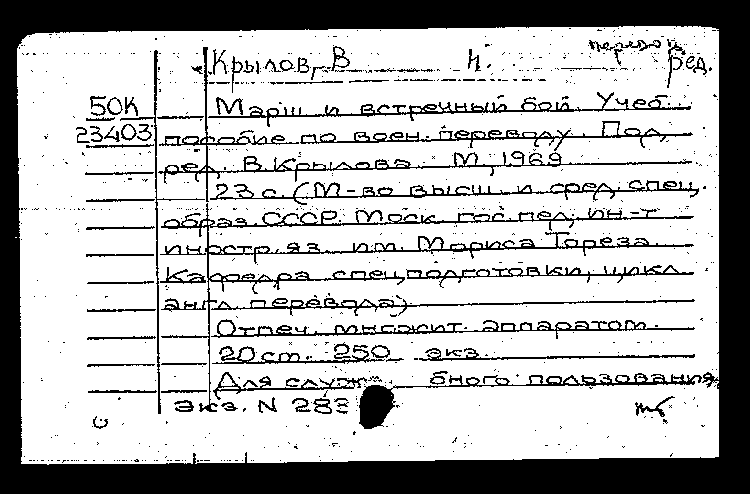 перевод.
Крылов, В Н. ред.
50К Марш и встречный бой. Учеб.
23403 пособие по воен. переводу. Под
ред. В. Крылова. М., 1969
23 с. (М-во высш. и сред. спец.
образ. СССР. Моск. гос. пед. ин-т
иностр. яз. им. Мориса Тореза.
Кафедра спец.подготовки, цикл
англ. перевода)
Отпеч. множит. аппаратом.
20 см. 250 экз.
Для служебного пользования.
Экз. N 283